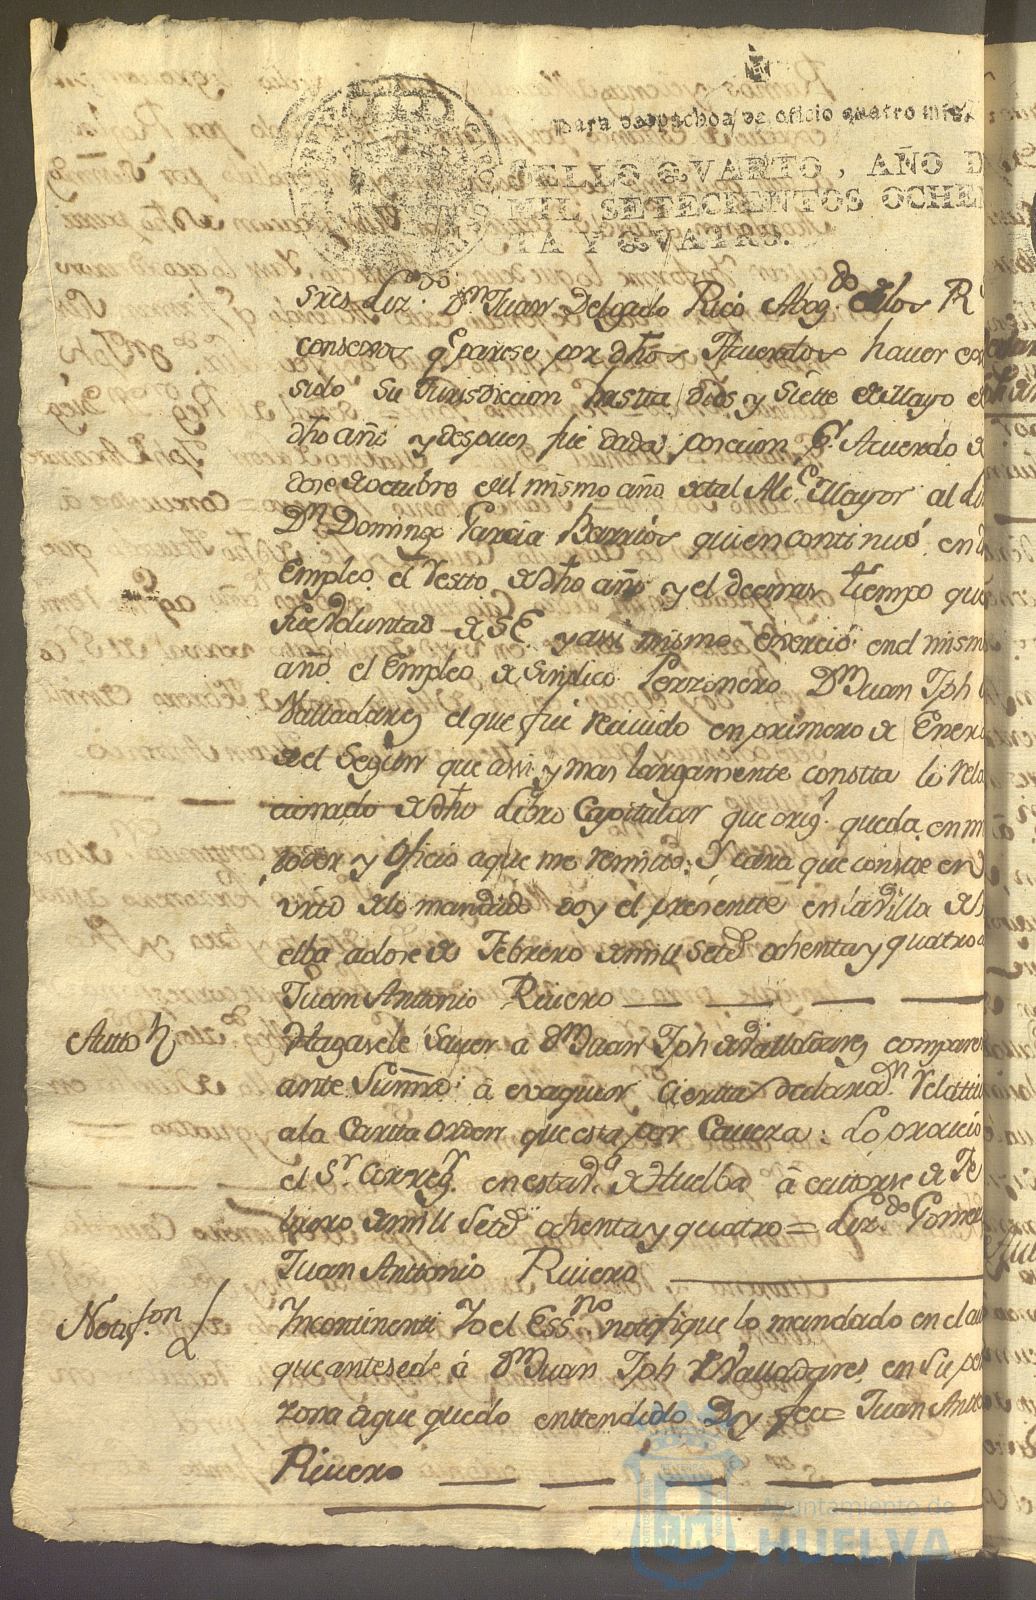 Para despachos de oficio quatro mrs.
SELLO QVARTO, AÑO D
MIL SETECIENTOS OCHEN
TA Y QVATRO.
sres. Lizdo. Dn Juan Delgado Ricó Abogdo. de los R
consexos qe parese por dhos Acuerdos haver exer
sido su Jurisdiccion hasta dies y siette de Mayo de
dho año y despues fue dada posecion pr. Acuerdo de
dose de octubre del mismo año de tal Alce. Mayor al Liz
Dn Domingo Garcia Barrios quien continuó en d
Empleo el resto de dho año y el demas tiempo que
fue voluntad de S E y assi mismo exerció en el mismo
año el Empleo de Sindico Perzonero Dn Juan Jph
Valladares el que fue recivido en primero de Enero
de el Segun que assi y mas largamente constta lo rela
cionado de dho Libro Capitular que origl. queda en mi
poder y oficio a que me remitto: Y para que conste en
virtd de lo mandado doy el presentte en la Villa de Hu
elba a dose de Febrero de mill setes ochenta y quattro
Juan Anttonio Rivero
Autto Hagasele saver a Dn Juan Jph de Valladares comparesca
ante Su mrd: á evaquar cierta declaraon relattiva
a la Cartta orden que esta por Caveza: Lo proveió
el Sr. Correxr. en esta Va. de Huelba á catorse de Fe
brero de mill setes ochenta y quatro = Lizdo Gomez
Juan Anttonio Rivero
Notifon Yncontinenti Yo el Essno notifique lo mandado en el au
que antesede á Dn Juan Jph de Valladares en su per
zona de que quedo enttendido Doy fee = Juan Antto
Rivero
Ayuntamiento de
HUELVA